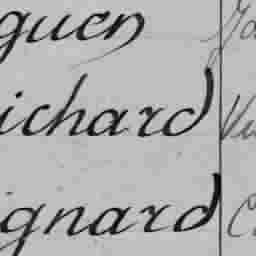 guen
ichard
ignard